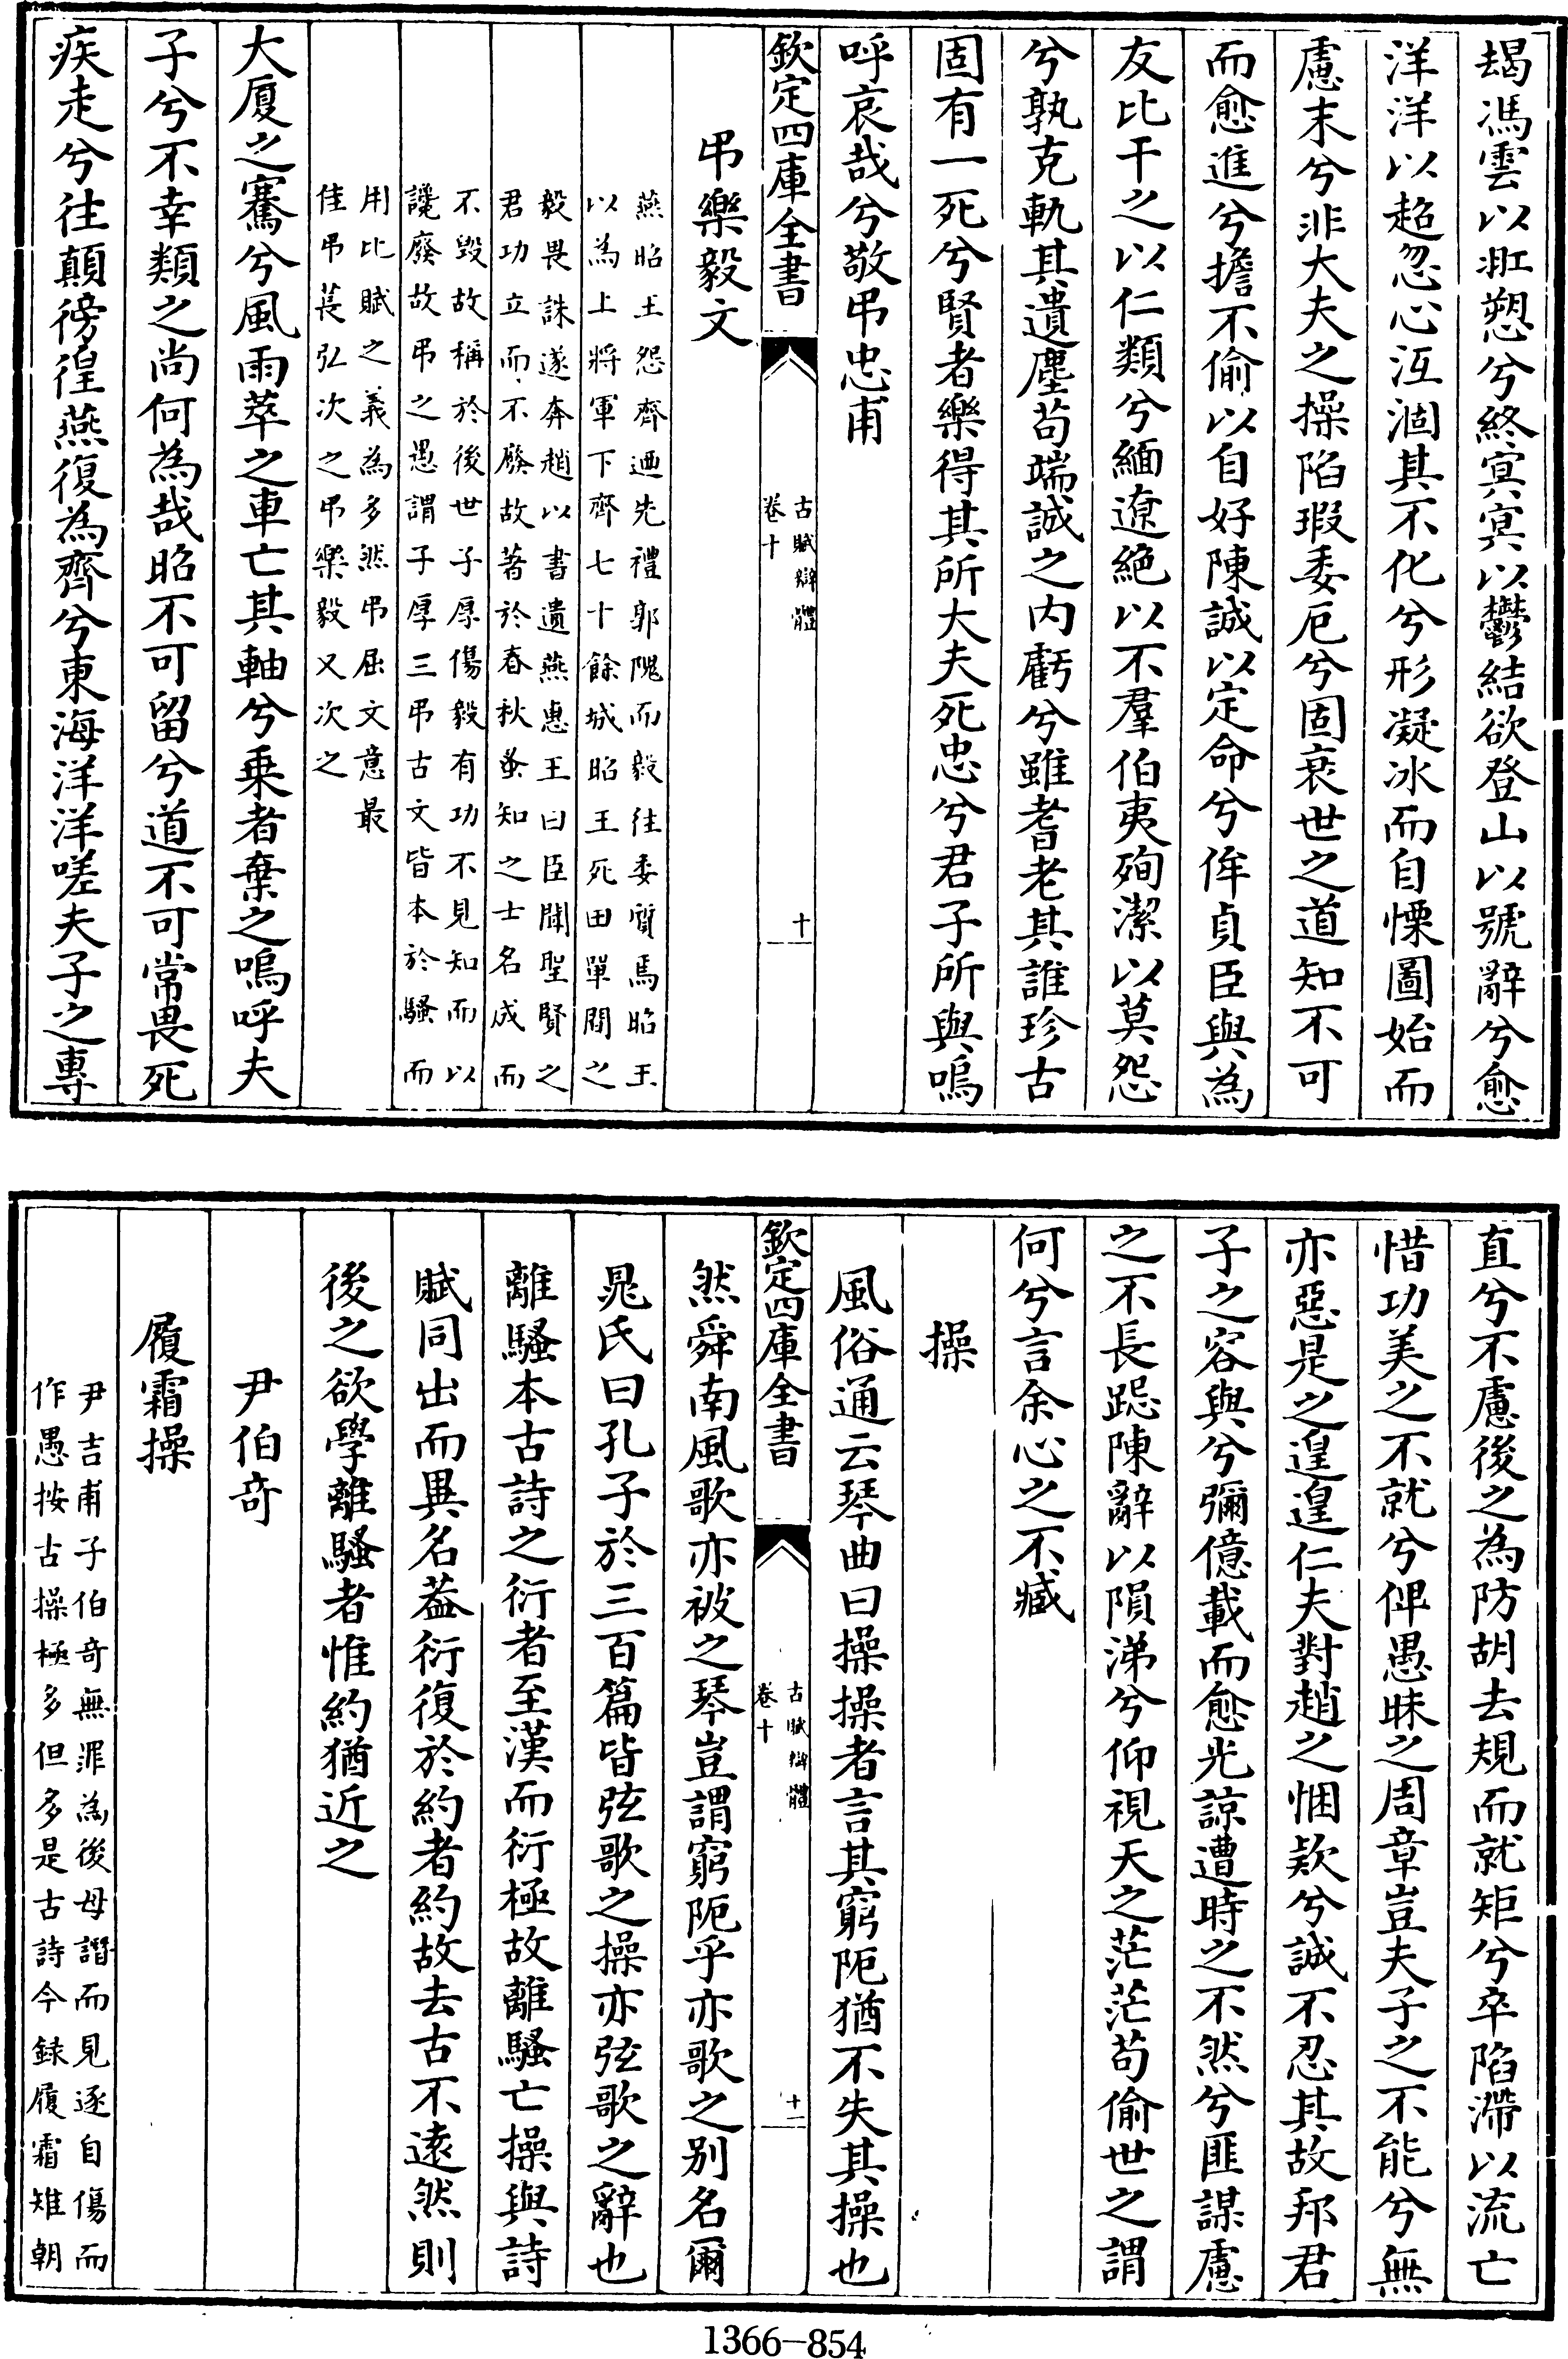 朅馮雲以羾愬兮終冥冥以鬱結欲登山以號辭兮愈
洋洋以超忽心沍涸其不化兮形凝冰而自慄圖始而
慮末兮非大夫之操陷瑕委厄兮固衰世之道知不可
而愈進兮擔不偷以自好陳誠以定命兮侔貞臣與為
友比干之以仁類兮緬遼絶以不羣伯夷殉潔以莫怨
兮孰克軌其遺塵茍端誠之内虧兮雖耆老其誰珍古
固有一死兮賢者樂得其所大夫死忠兮君子所與嗚
呼哀哉兮敬弔忠甫
欽定四庫全書
古賦辯體
卷十
十
弔樂毅文
燕昭王怨齊廼先禮郭隗而毅往委質焉昭王
以為上將軍下齊七十餘城昭王死田單間之
毅畏誅遂奔趙以書遺燕惠王曰臣聞聖賢之
君功立而不廢故著於春秋蚤知之士名成而
不毁故稱於後世子厚傷毅有功不見知而以
讒廢故弔之愚謂子厚三弔古文皆本於騷而
用比賦之義為多然弔屈文意最
佳弔萇弘次之弔樂毅又次之
大厦之騫兮風雨萃之車亡其軸兮乗者棄之嗚呼夫
子兮不幸類之尚何為哉昭不可留兮道不可常畏死
疾走兮往顛徬徨燕復為齊兮東海洋洋嗟夫子之專
直兮不慮後之為防胡去規而就矩兮卒陷滯以流亡
惜功美之不就兮俾愚昧之周章豈夫子之不能兮無
亦惡是之遑遑仁夫對趙之悃欵兮誠不忍其故邦君
子之容與兮彌億載而愈光諒遭時之不然兮匪謀慮
之不長跽陳辭以隕涕兮仰視天之茫茫茍偷世之謂
何兮言余心之不臧
操
風俗通云琴曲曰操操者言其窮阨猶不失其操也
欽定四庫全書
古賦辯體
卷十
十一
然舜南風歌亦被之琴豈謂窮阨乎亦歌之别名爾
晁氏曰孔子於三百篇皆弦歌之操亦弦歌之辭也
離騷本古詩之衍者至漢而衍極故離騷亡操與詩
賦同出而異名葢衍復於約者約故去古不逺然則
後之欲學離騷者惟約猶近之
尹伯奇
履霜操
尹吉甫子伯奇無罪為後母譖而見逐自傷而
作愚按古操極多但多是古詩今録履霜雉朝
1366-854